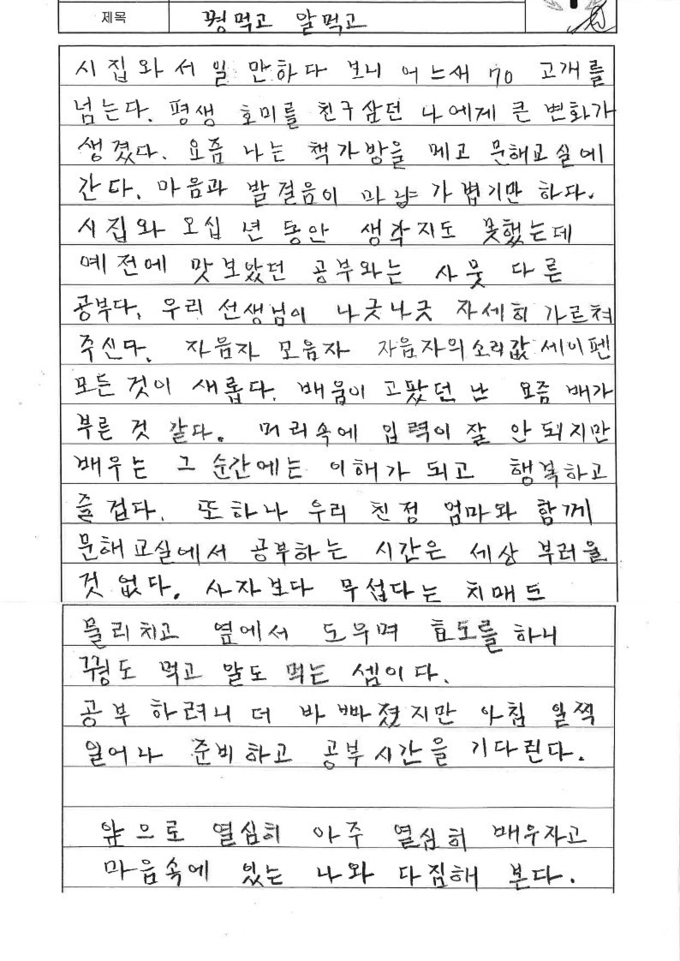 제목 꿩먹고 알먹고
시집와서 일 만하다 보니 어느새 70 고개를
넘는다. 평생 호미를 친구삼던 나에게 큰 변화가
생겼다. 요즘 나는 책가방을 메고 문해교실에
간다. 마음과 발걸음이 마냥 가볍기만 하다.
시집와 오십 년 동안 생각지도 못했는데
예전에 맛보았던 공부와는 사뭇 다른
공부다. 우리 선생님이 나긋나긋 자세히 가르쳐
주신다. 자음자 모음자 자음자의 소리값 세이펜
모든 것이 새롭다. 배움이 고팠던 난 요즘 배가
부른 것 같다. 머리속에 입력이 잘 안 되지만
배우는 그 순간에는 이해가 되고 행복하고
즐겁다. 또하나 우리 친정 엄마와 함께
문해교실에서 공부하는 시간은 세상 부러울
것 없다. 사자보다 무섭다는 치매도
물리치고 옆에서 도우며 효도를 하니
꿩도 먹고 알도 먹는 셈이다.
공부 하려니 더 바빠졌지만 아침 일찍
일어나 준비하고 공부시간을 기다린다.
앞으로 열심히 아주 열심히 배우자고
마음속에 있는 나와 다짐해 본다.